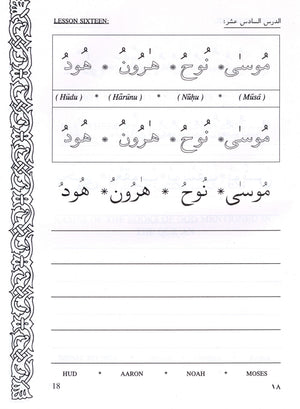 LESSON SIXTEEN: الدرس السادس عشر:
مُوسٰى * نُوحُ * هٰرُونُ * هُودُ
( Hūdu ) * ( Hārūnu ) * ( Nūḥu ) * ( Mūsā )
مُوسٰى * نُوحُ * هٰرُونُ * هُودُ
مُوسٰى * نُوحُ * هٰرُونُ * هُودُ
HUD * AARON * NOAH * MOSES
18 ١٨